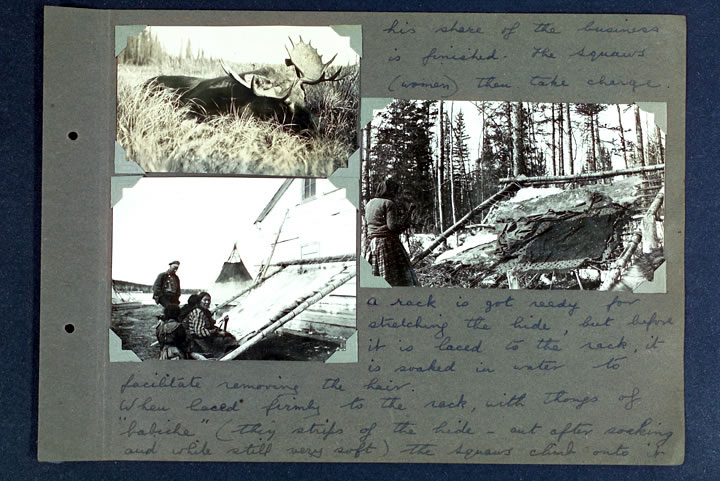 his share of the business
is finished. The squaws
(women) then take charge.
A rack is got ready for
stretching the hide, but before
it is laced to the rack, it
is soaked in water to
facilitate removing the hair.
When laced firmly to the rack, with thongs of
"babiche" (thin strips of the hide - cut after soaking
and while still very soft) the squaws climb onto it